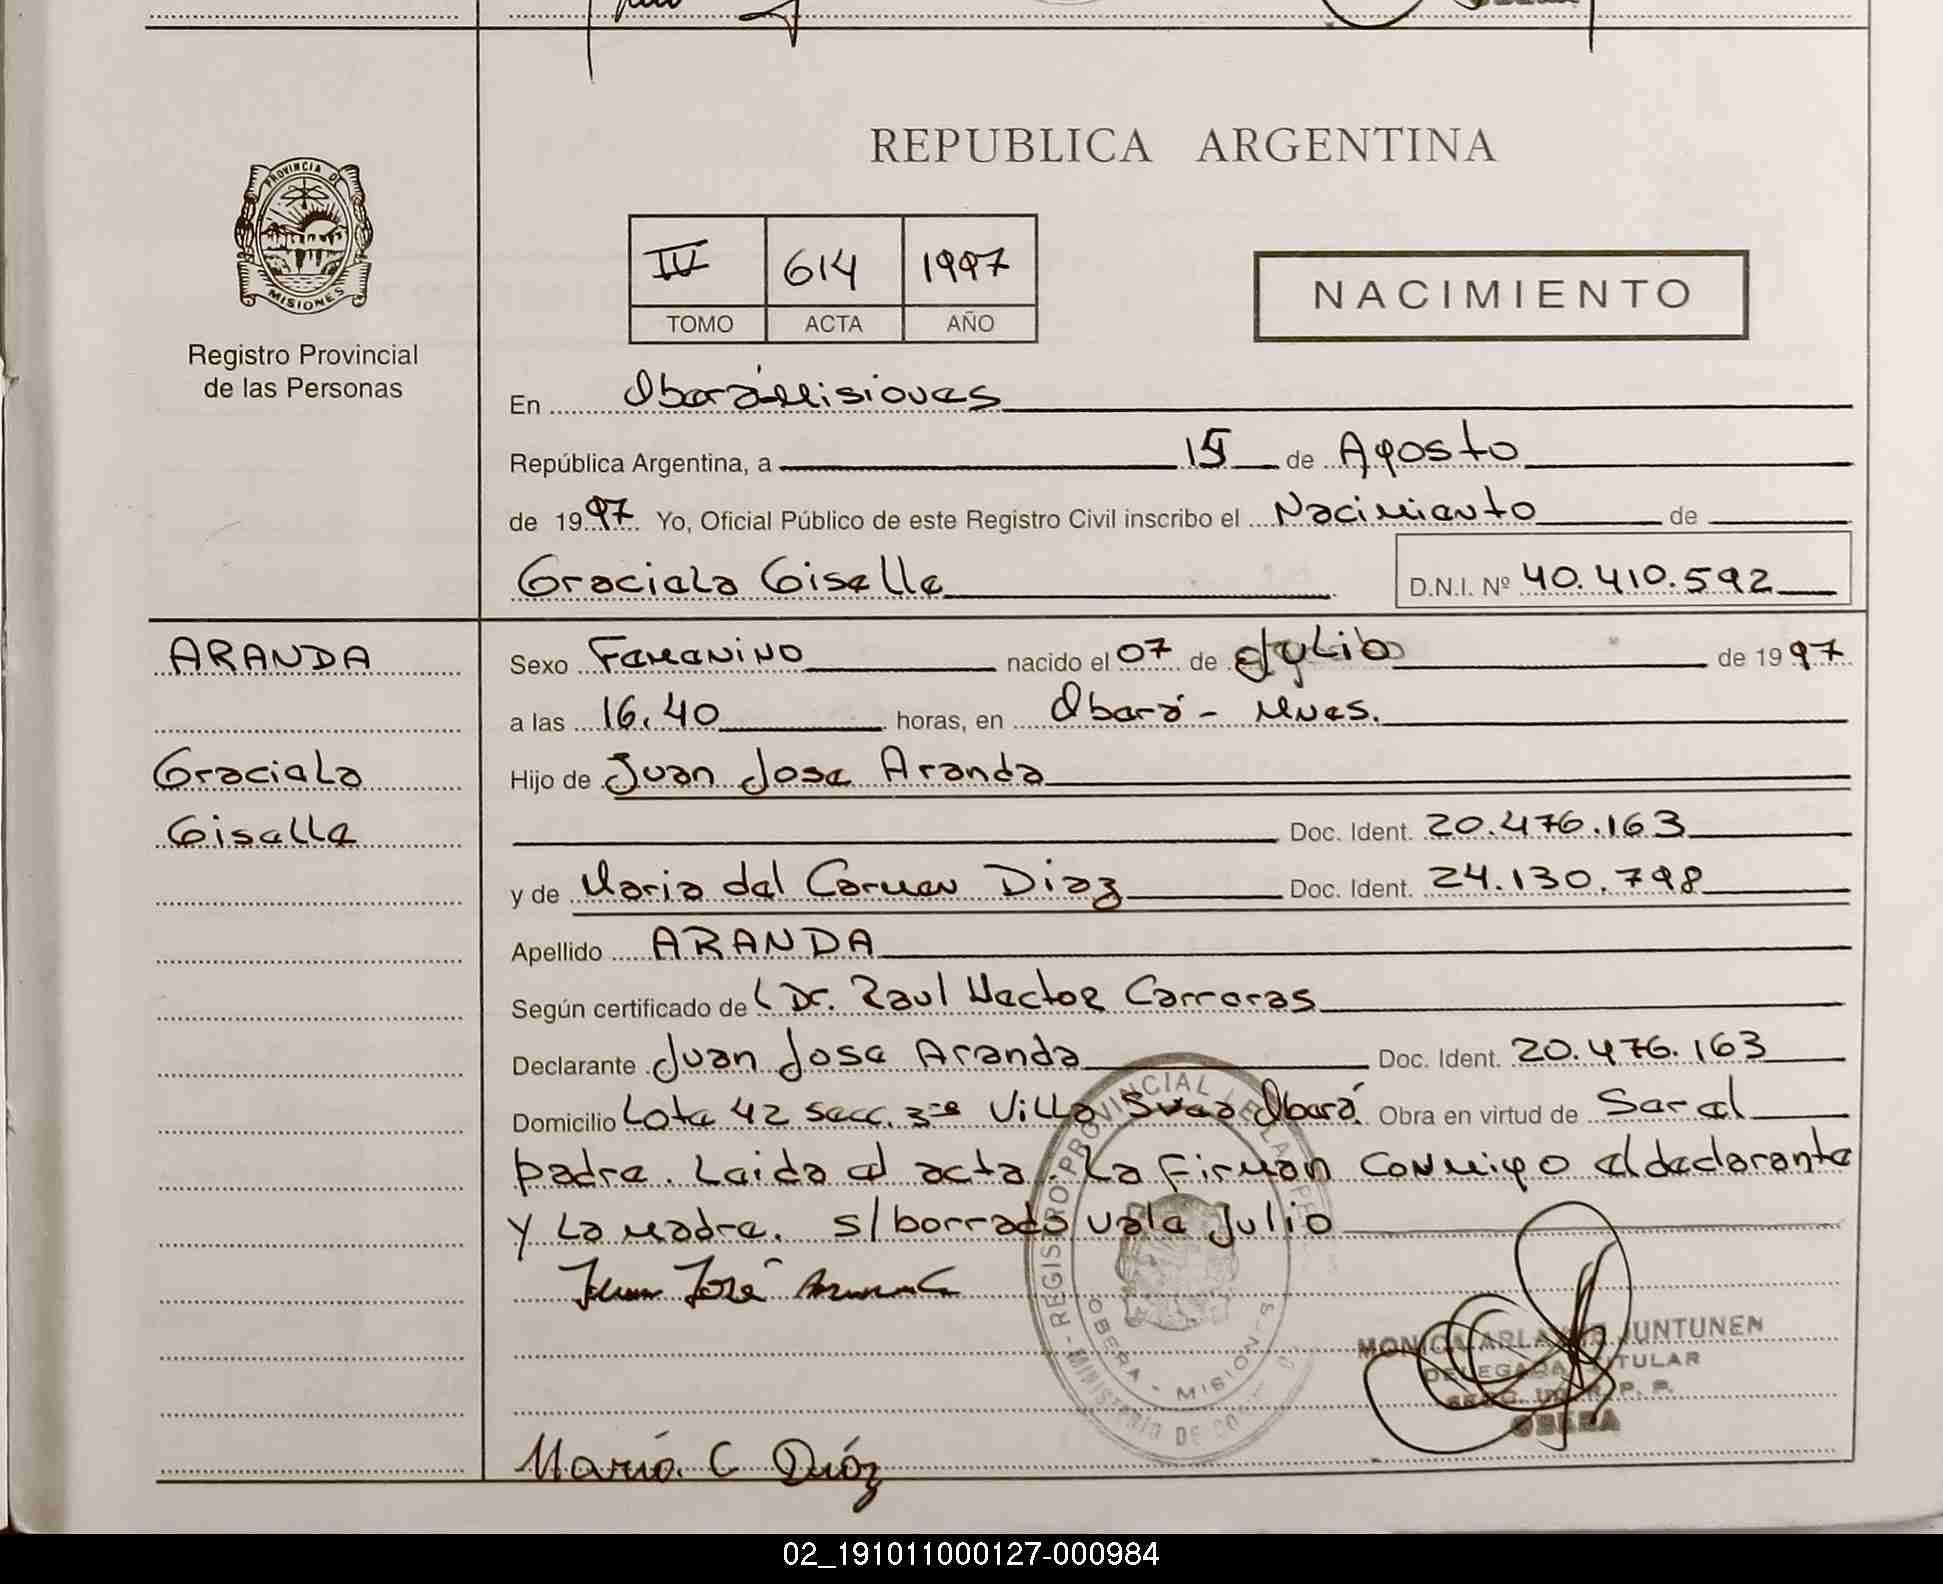 REPUBLICA ARGENTINA
PROVINCIA DE
MISIONES
Registro Provincial
de las Personas
IV 614 1997
TOMO ACTA AÑO
NACIMIENTO
En Oberá-Misiones
República Argentina, a 15 de Agosto
de 1997 Yo, Oficial Público de este Registro Civil inscribo el Nacimiento de
Graciela Giselle D.N.I. Nº 40.410.592
ARANDA
Graciela
Giselle
Sexo Femenino nacido el 07 de Julio de 1997
a las 16.40 horas, en Oberá - Mnes.
Hijo de Juan Jose Aranda
Doc. Ident. 20.476.163
y de Maria del Carmen Diaz Doc. Ident. 24.130.798
Apellido ARANDA
Según certificado de Dr. Raul Hector Carreras
Declarante Juan Jose Aranda Doc. Ident. 20.476.163
Domicilio Lote 42 Secc. 3ra Villa Svea Oberá. Obra en virtud de Ser el
padre. Leida el acta. La Firman conmigo el declarante
y La madre. s/borrado vale Julio
Juan José Aranda
REGISTRO PROVINCIAL
OBERA - MISIONES
MINISTERIO DE
MONICA JUNTUNEN
DELEGADA TITULAR
OBERA
Maria C Diaz
02_191011000127-000984